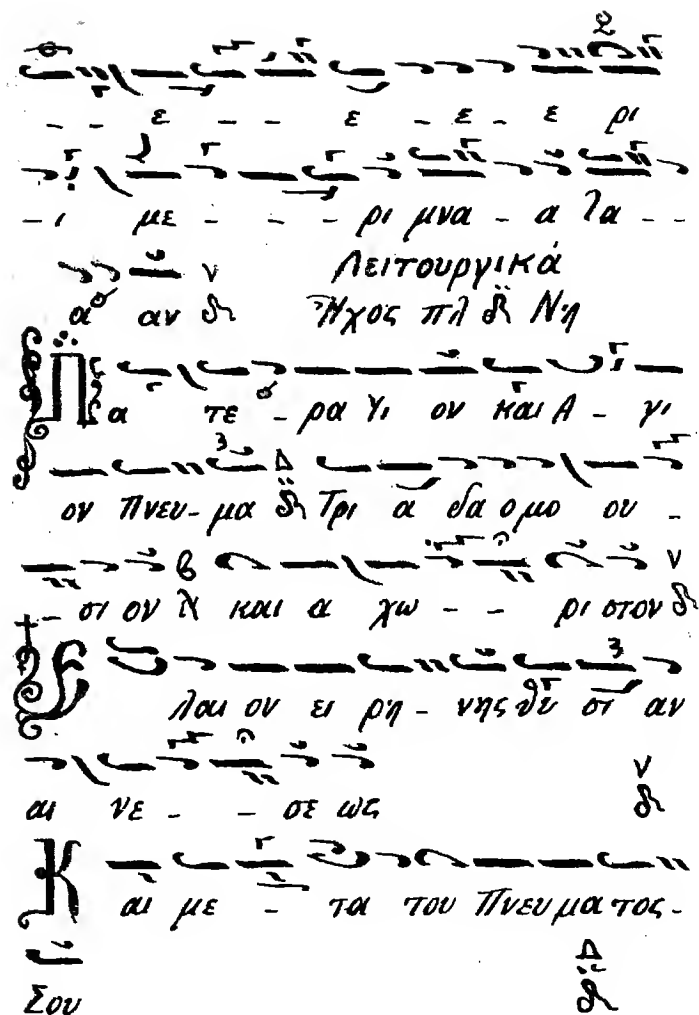 -- ε -- ε - ε - ε ρι
- ι με - - - ρι μνα - α τα - -
α αν Λειτουργικά
Ἦχος πλ δ Νη
Πα τε - ρα Υι ον και Α - γι
ον Πνευ - μα Τρι α δα ομο ου -
- σι ον και α χω - - ρι στον
Ελαι ον ει ρη - νης θυ σι αν
αι νε - - σε ως
Και με - τα του Πνευ μα τος -
Σου